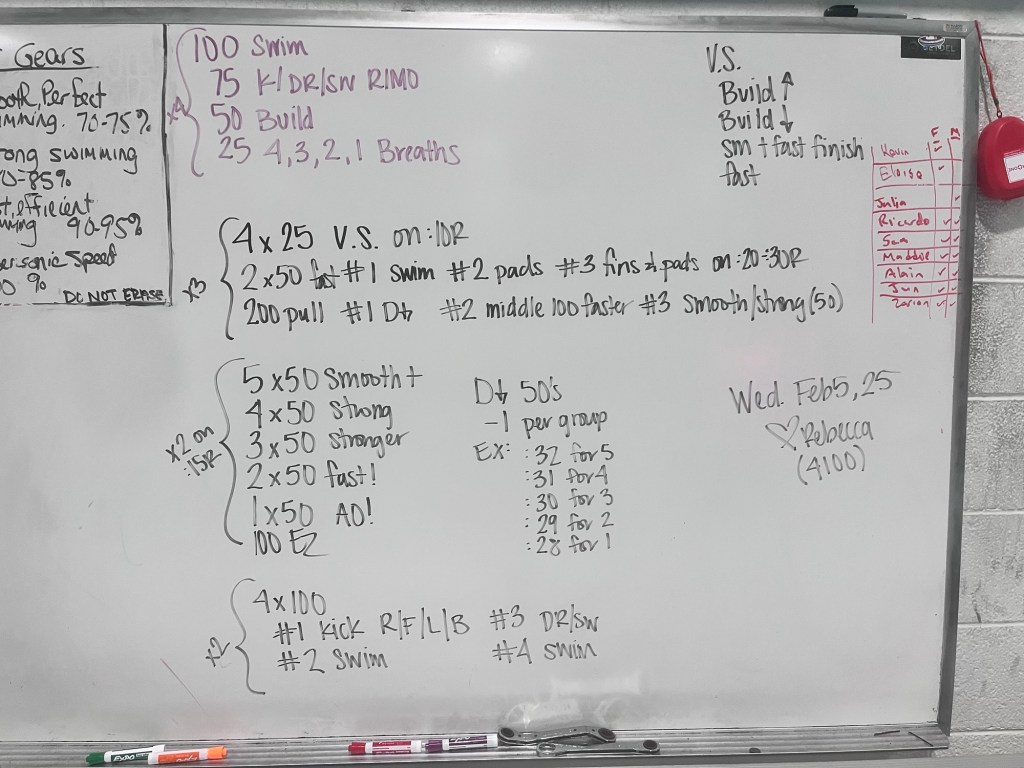 Gears
Perfect
70-75%
swimming
85%
efficient
90-95%
Speed
%
DO NOT ERASE
x4
100 Swim
75 K/DR/SW RIMO
50 Build
25 4,3,2,1 Breaths
V.S.
Build ↑
Build ↓
sm + fast finish
fast
F M
Kevin
Eloise ✓
Julia
Ricardo ✓✓
Sam ✓✓
Maddie ✓✓
Alain ✓✓
Jun ✓✓
✓✓
x3
4 x 25 V.S. on :10R
2 x 50 fast #1 swim #2 pads #3 fins + pads on :20-:30R
200 pull #1 D↓ #2 middle 100 faster #3 smooth/strong (50)
x2 on
:15R
5 x 50 Smooth +
4 x 50 Strong
3 x 50 stronger
2 x 50 fast!
1 x 50 AO!
100 EZ
D↓ 50's
-1 per group
EX: :32 for 5
:31 for 4
:30 for 3
:29 for 2
:28 for 1
Wed. Feb 5, 25
♡ Rebecca
(4100)
x2
4 x 100
#1 kick R/F/L/B #3 DR/SW
#2 Swim #4 swim
EXPO